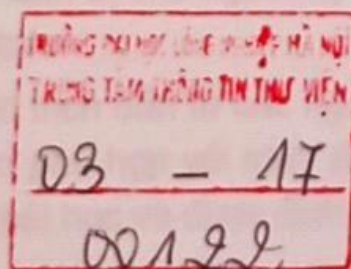 TRƯỜNG ĐẠI HỌC CÔNG NGHIỆP HÀ NỘI
TRUNG TÂM THÔNG TIN THƯ VIỆN
03 - 17
00122